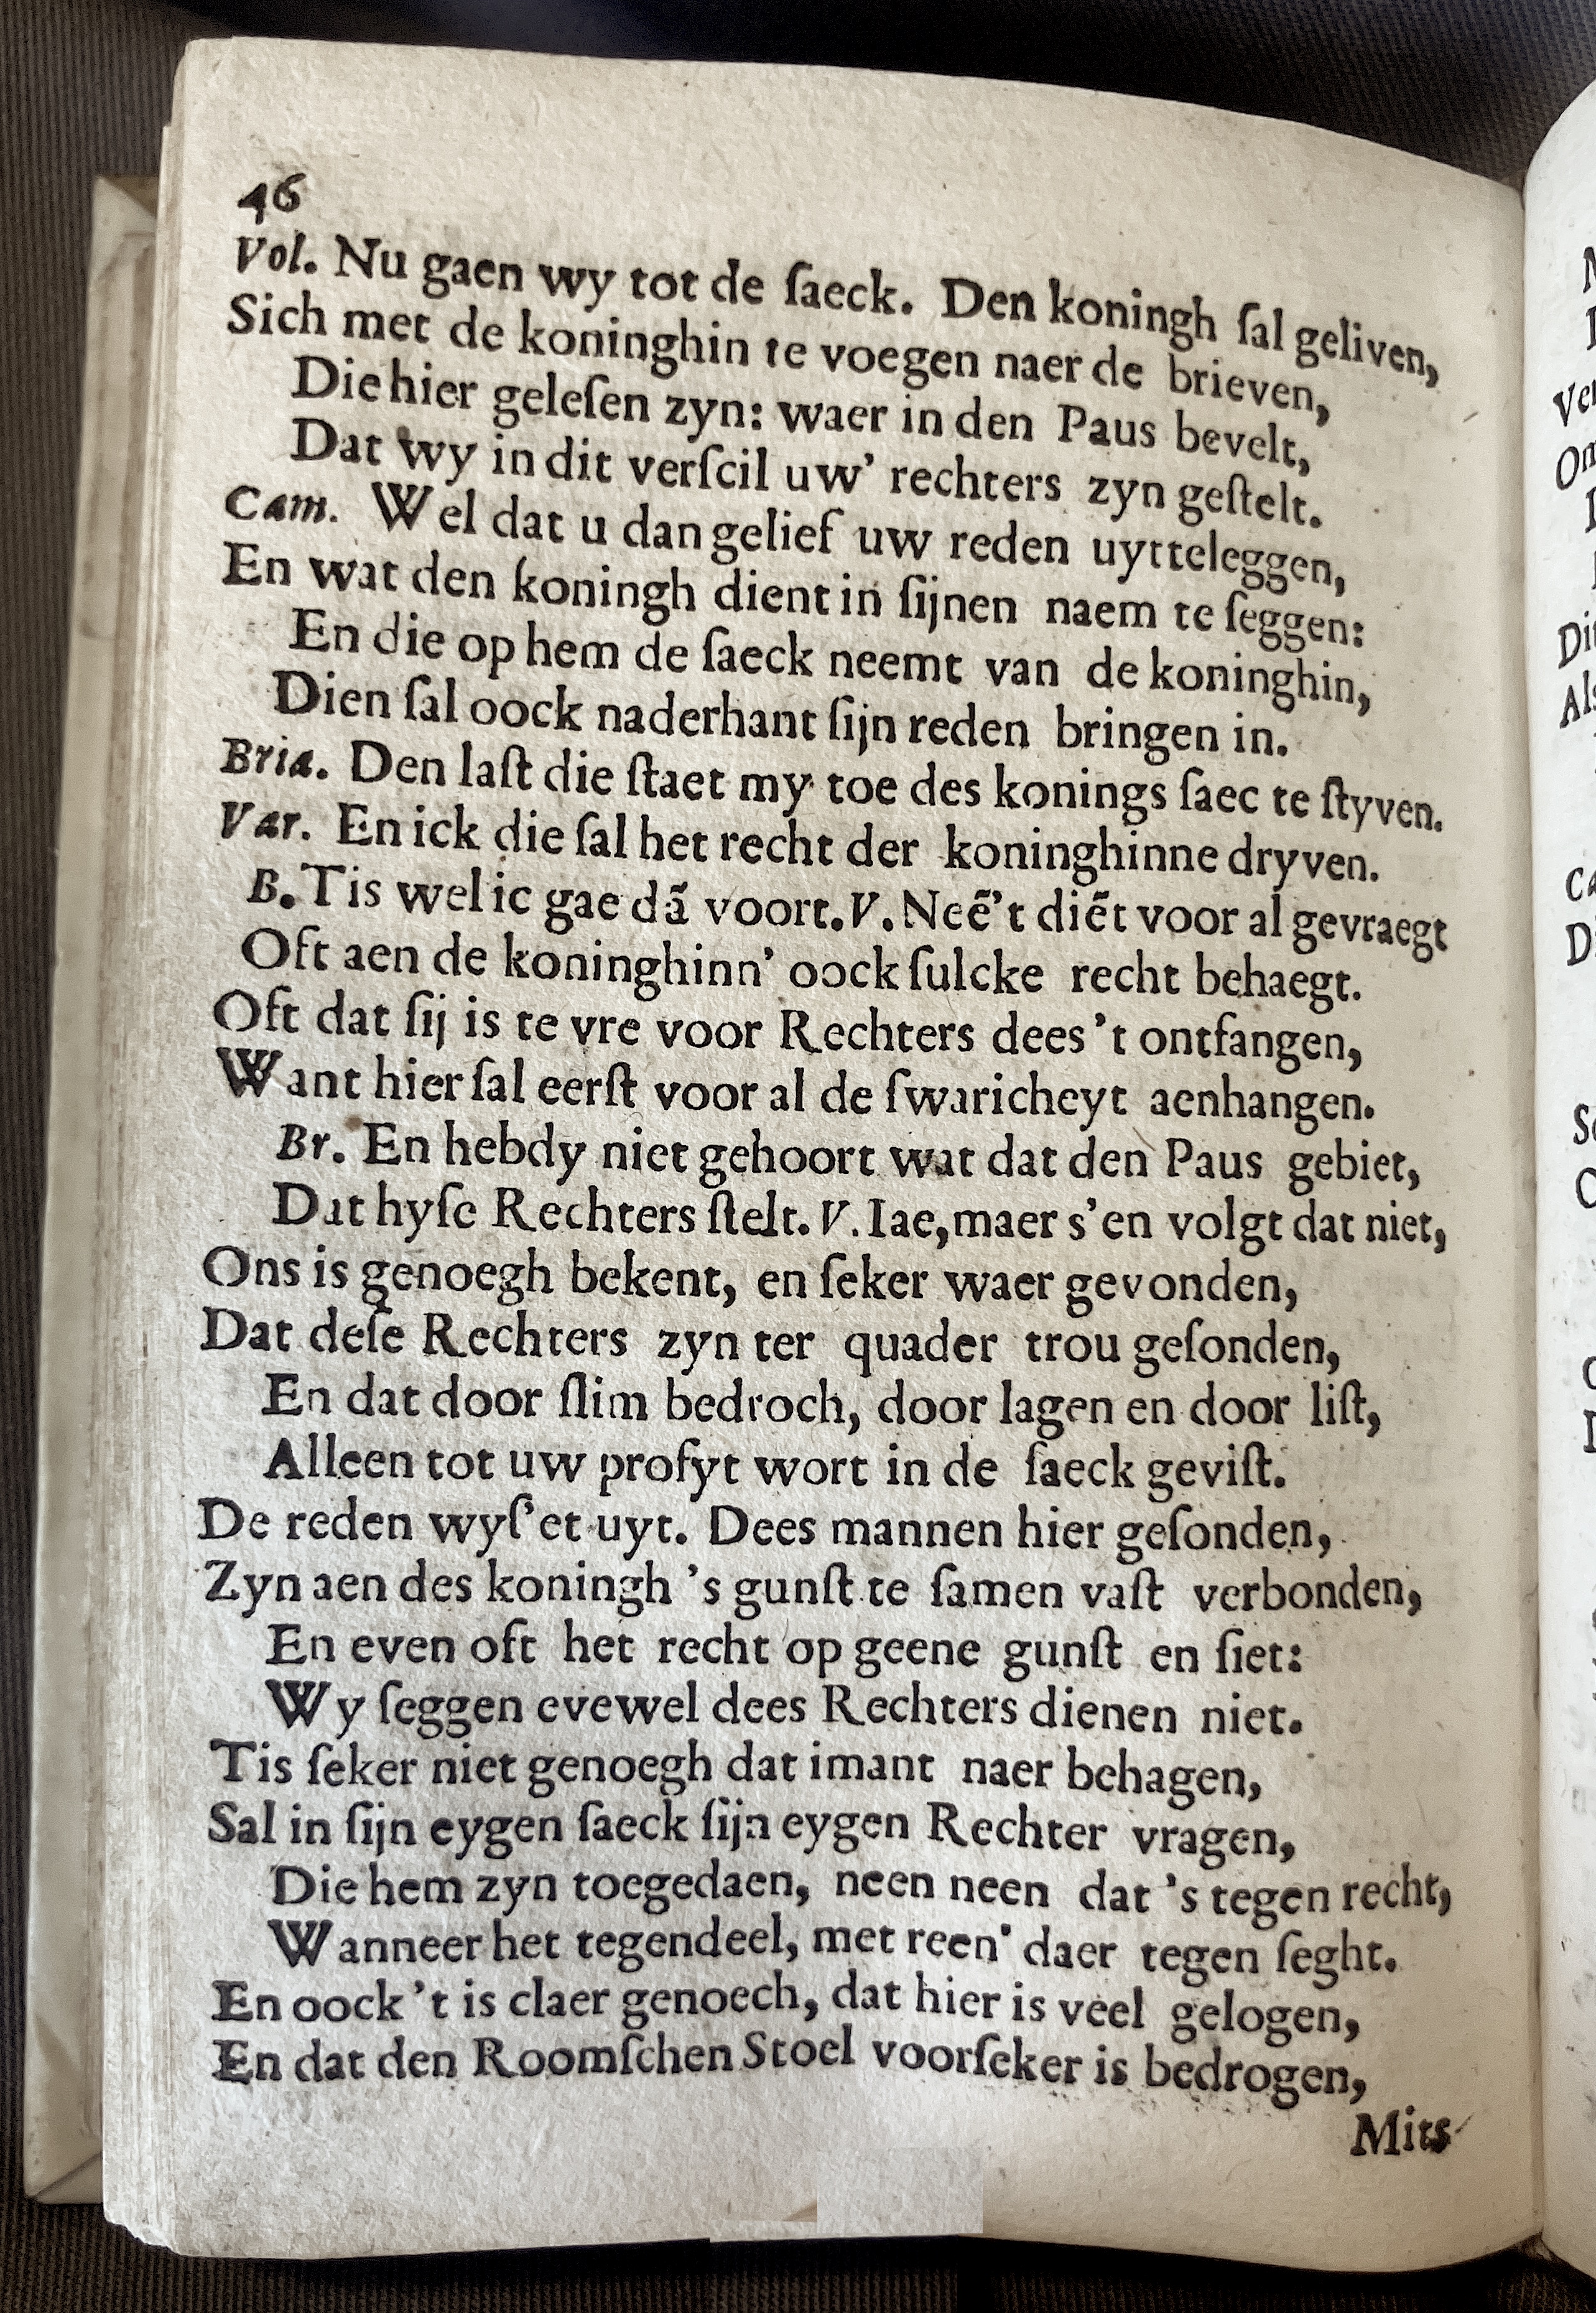 46
Vol. Nu gaen wy tot de ſaeck. Den koningh ſal geliven,
Sich met de koninghin te voegen naer de brieven,
Die hier geleſen zyn: waer in den Paus bevelt,
Dat wy in dit verſcil uw' rechters zyn geſtelt.
Cam. Wel dat u dan gelief uw reden uytteleggen,
En wat den koningh dient in ſijnen naem te ſeggen:
En die op hem de ſaeck neemt van de koninghin,
Dien ſal oock naderhant ſijn reden bringen in.
Bria. Den laſt die ſtaet my toe des konings ſaec te ſtyven.
Var. En ick die ſal het recht der koninghinne dryven.
B. Tis wel ic gae dã voort. V. Neẽ't diẽt voor al gevraegt
Oft aen de koninghinn' oock ſulcke recht behaegt.
Oft dat ſij is te vre voor Rechters dees 't ontfangen,
Want hier ſal eerſt voor al de ſwaricheyt aenhangen.
Br. En hebdy niet gehoort wat dat den Paus gebiet,
Dat hyſe Rechters ſtelt. V. Iae, maer s'en volgt dat niet,
Ons is genoegh bekent, en ſeker waer gevonden,
Dat deſe Rechters zyn ter quader trou geſonden,
En dat door ſlim bedroch, door lagen en door liſt,
Alleen tot uw profyt wort in de ſaeck geviſt.
De reden wyſ'et uyt. Dees mannen hier geſonden,
Zyn aen des koningh 's gunſt te ſamen vaſt verbonden,
En even oft het recht op geene gunſt en ſiet:
Wy ſeggen evewel dees Rechters dienen niet.
Tis ſeker niet genoegh dat imant naer behagen,
Sal in ſijn eygen ſaeck ſijn eygen Rechter vragen,
Die hem zyn toegedaen, neen neen dat 's tegen recht,
Wanneer het tegendeel, met reen' daer tegen ſeght.
En oock 't is claer genoech, dat hier is veel gelogen,
En dat den Roomſchen Stoel voorſeker is bedrogen,
Mits